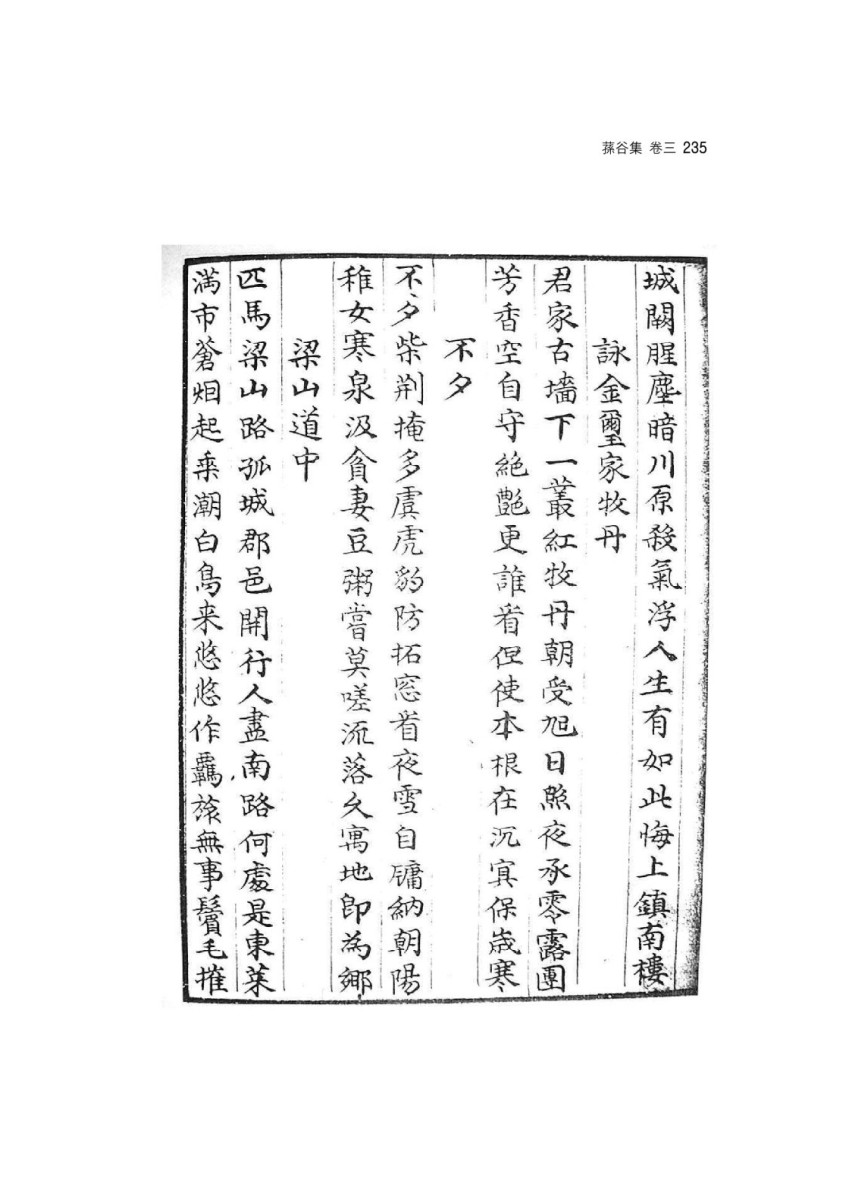 蓀谷集 卷三 235
城闕腥塵暗川原殺氣浮人生有如此悔上鎮南樓
詠金璽家牧丹
君家古墻下一叢紅牧丹朝受旭日照夜承零露團
芳香空自守絶艶更誰看但使本根在沉冥保歲寒
不夕
不夕柴荆掩多虞虎豹防拓窓看夜雪自牖納朝陽
稚女寒泉汲貧妻豆粥嘗莫嗟流落久寓地即為鄉
梁山道中
匹馬梁山路孤城郡邑開行人盡南路何處是東萊
滿市蒼烟起乘潮白鳥来悠悠作羈旅無事鬢毛摧